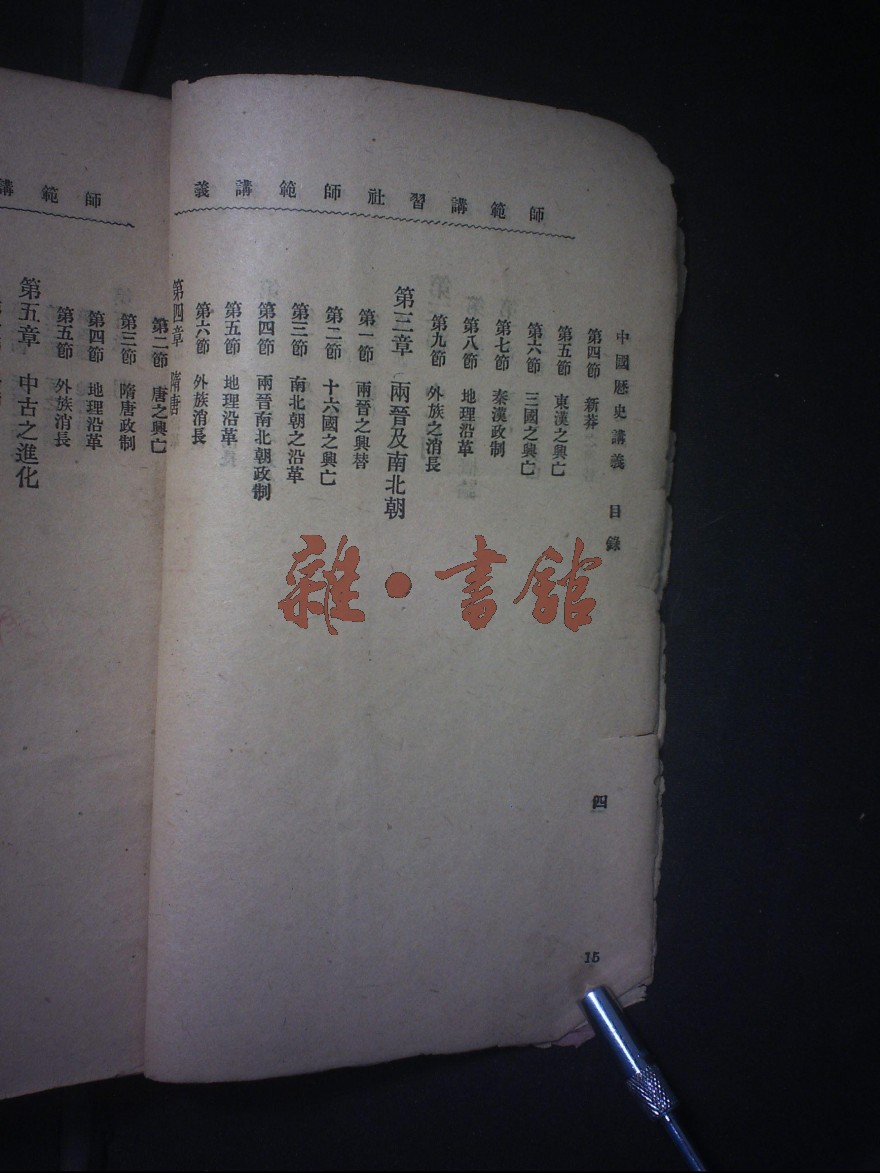 師範講習社師範講義
中國歷史講義 目錄
四
15
第四節 新莽
第五節 東漢之興亡
第六節 三國之興亡
第七節 秦漢政制
第八節 地理沿革
第九節 外族之消長
第三章 兩晉及南北朝
第一節 兩晉之興替
第二節 十六國之興亡
第三節 南北朝之沿革
第四節 兩晉南北朝政制
第五節 地理沿革
第六節 外族消長
第四章 隋唐
師範講
第二節 唐之興亡
第三節 隋唐政制
第四節 地理沿革
第五節 外族消長
第五章 中古之進化
雜·書館